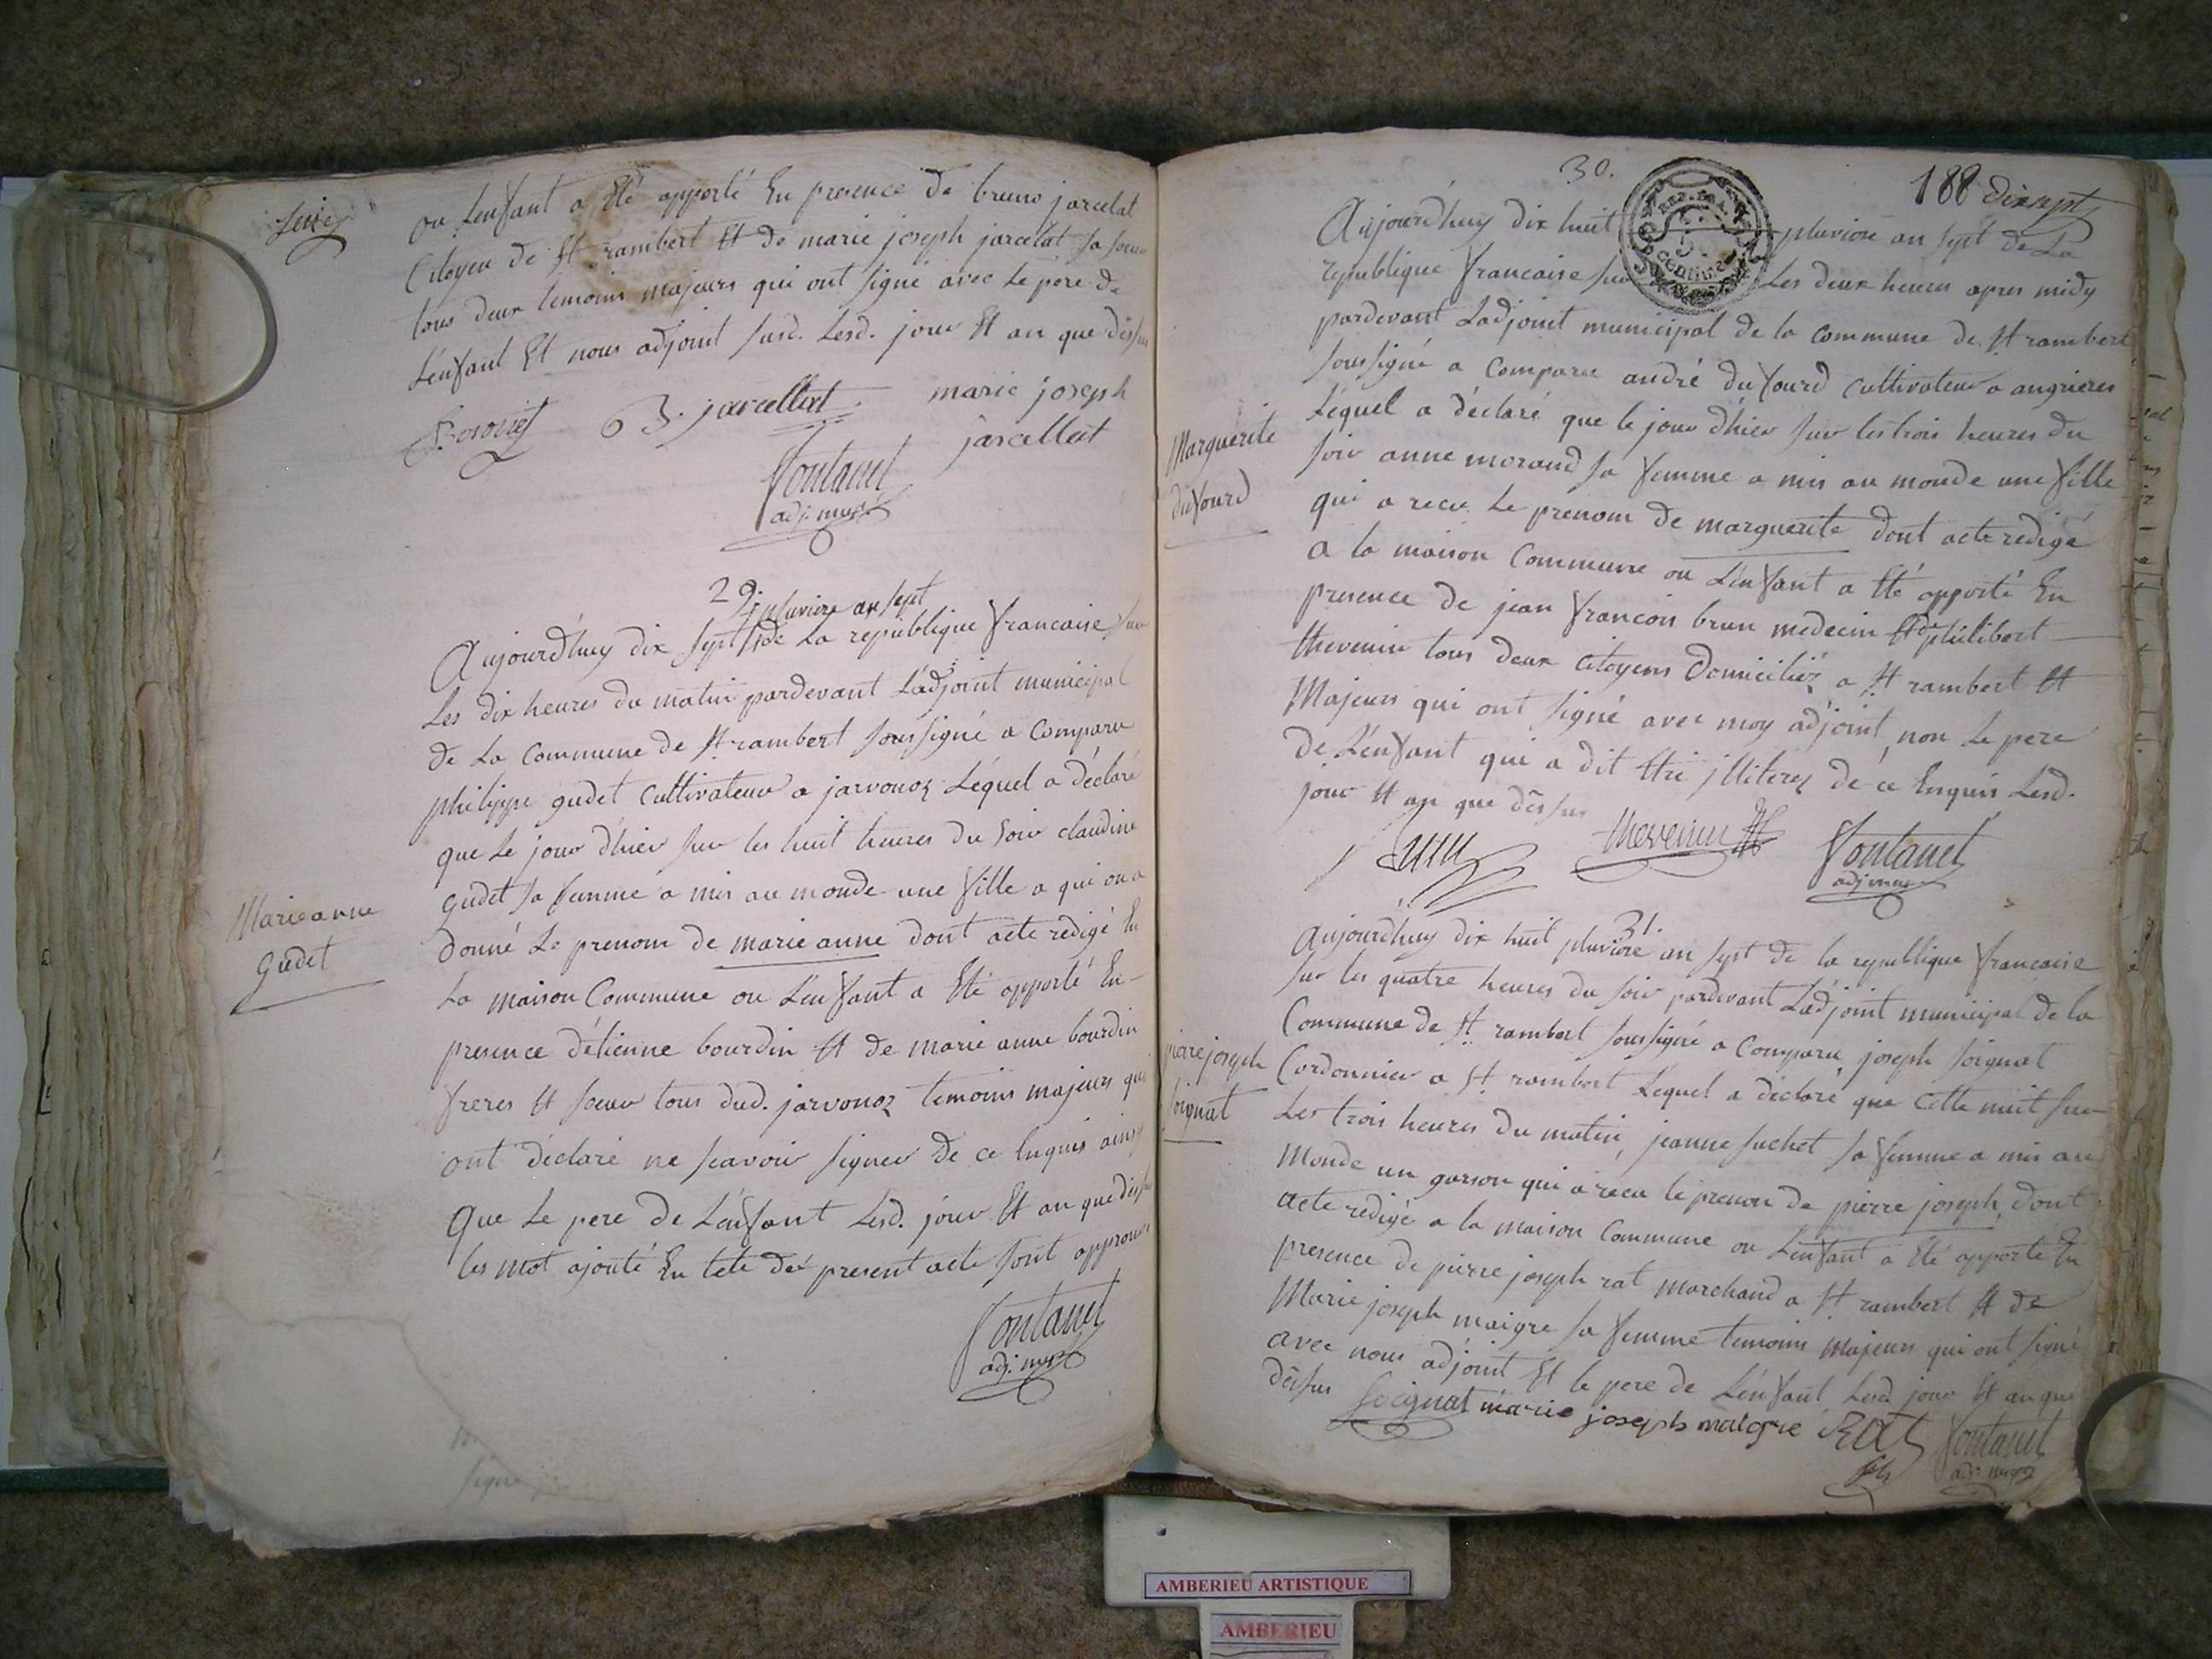 Suite
ou Lenfant a Eté apporté En presence de bruno jarcelat
Citoyen de St rambert Et de marie joseph jarcelat sa soeur
tous deux temoins majeurs qui ont signé avec Le pere de
L'enfant Et nous adjoint susd. Lesd. jour Et an que dessus
B. jarcellat marie joseph
jarcellat
fontanel
adj. mupal
29.
pluviose an sept
Aujourd'huy dix sept de La republique francaise sur
Les dix heures du matin pardevant L'adjoint municipal
de La Commune de St rambert soussigné a Comparu
philippe gudet Cultivateur a jarvonoz Léquel a déclaré
que Le jour d'hier sur les huit heures du soir claudine
gudet sa femme a mis au monde une fille a qui on a
donné Le prenom de marie anne dont acte redigé En
La maison Commune ou L'enfant a Eté apporté En
presence d'étienne bourdin Et de marie anne bourdin
freres Et soeur tous dud. jarvonoz temoins majeurs qui
ont déclaré ne scavoir signer de ce Enquis ainsy
Que Le pere de L'enfant Lesd. jour Et an que dessus
les mot ajouté En tete du present acte sont approuvé
Marie anne
gudet
fontanel
adj. mupal
30.
188 dix sept
Aujourd'huy dix huit pluviose an sept de La
republique francaise sur Les deux heures apres midy
pardevant L'adjoint municipal de la Commune de St rambert
soussigné a Comparu andré dufourd Cultivateur a angrieres
Léquel a déclaré que le jour d'hier sur les trois heures du
soir anne morand sa femme a mis au monde une fille
qui a recu Le prénom de marguerite dont acte redigé
a la maison Commune ou L'enfant a Eté apporté En
presence de jean francois brun medecin Et de philibert
thevenin tous deux Citoyens domiciliéz a St rambert Et
Majeurs qui ont signé avec moy adjoint, non Le pere
de L'enfant qui a dit Etre jlliterez de ce Enquis Lesd.
jour Et an que dessus
Marguerite
dufourd
brun thevenin fontanel
adj mup
31.
Aujourd'huy dix huit pluviose an sept de la republique francaise
sur les quatre heures du soir pardevant L'adjoint municipal de la
Commune de St rambert soussigné a Comparu joseph soignat
Cordonnier a St rambert Léquel a déclaré que cette nuit sur
Les trois heures du matin, jeanne suchet sa femme a mis au
Monde un garson qui a recu le prenon de pierre joseph, dont
acte redigé a la maison Commune ou L'enfant a Eté apporté En
presence de pierre joseph rat marchand a St rambert Et de
Marie joseph maigre sa femme temoins majeurs qui ont signé
avec nous adjoint Et le pere de L'enfant Lesd jour Et an que
dessus
pierre joseph
soignat
Soignat marie joseph maigre RAT fontanel
adj. mupal
AMBERIEU ARTISTIQUE
AMBERIEU